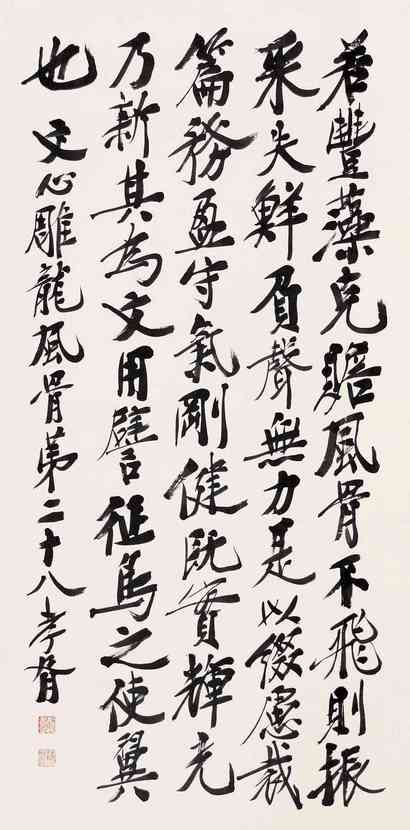 若豐藻克贍風骨不飛則振
采失鮮負聲無力是以綴慮裁
篇務盈守氣剛健既實輝光
乃新其為文用譬征鳥之使翼
也 文心雕龍風骨第二十八 孝胥